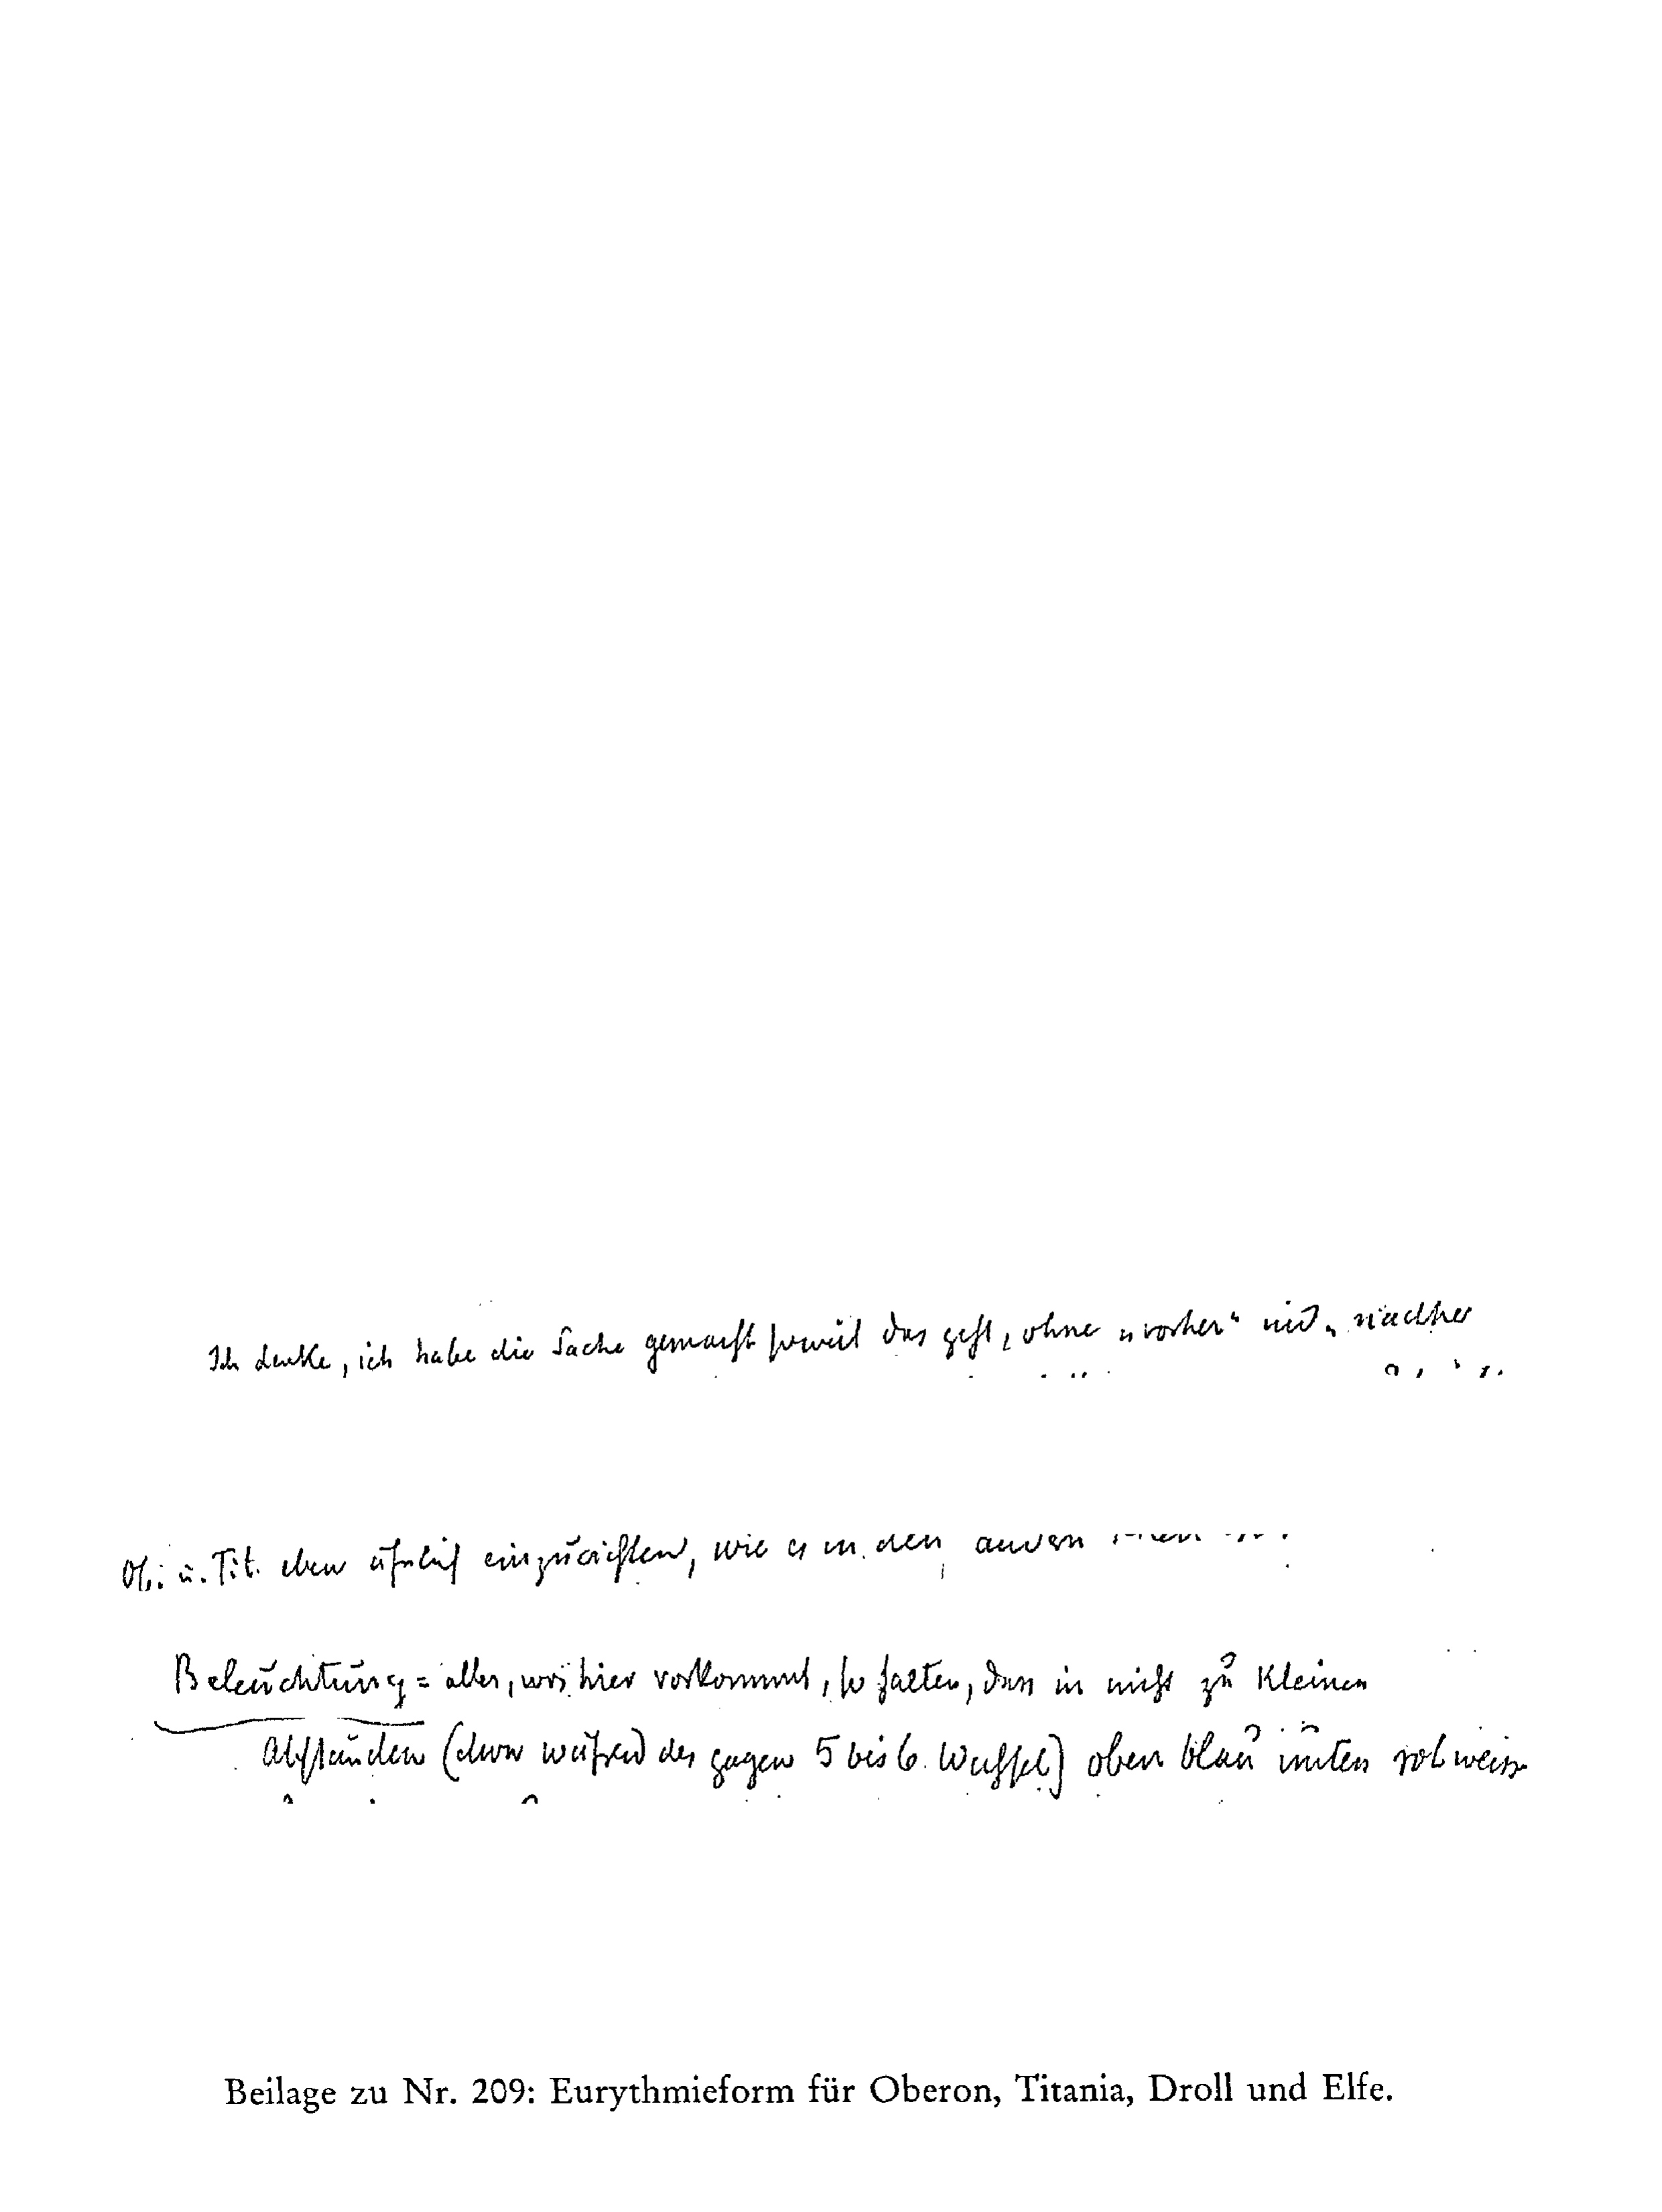 Ich denke, ich habe die Sache gemacht soweit das geht, ohne „vorher“ und „nachher
Ob. u. Tit. eben ähnlich einzurichten, wie es in den andern
Beleuchtung = alles, was hier vorkommt, so halten, dass in nicht zu kleinen
Abständen (etwa während des ganzen 5 bis 6 Wechsel) oben blau unten rot weiss
Beilage zu Nr. 209: Eurythmieform für Oberon, Titania, Droll und Elfe.